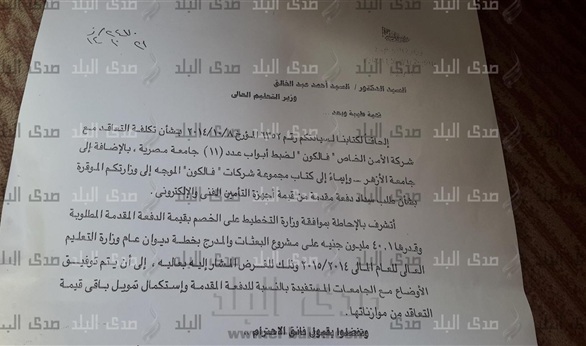 السيد الدكتور / السيد أحمد عبد الخالق
وزير التعليم العالى
تحية طيبة وبعد
إلحاقا لكتابنا لسيادتكم رقم ١٣٥٦ المؤرخ ٢٠١٤/١٠/٨ بشأن تكلفة التعاقد مع
شركة الأمن الخاص "فالكون" لضبط أبواب عدد (١١) جامعة مصرية ، بالإضافة إلى
جامعة الأزهر – وإيماءً إلى كتاب مجموعة شركات "فالكون" الموجه إلى وزارتكم الموقرة
بشأن طلب سداد دفعة مقدمة من قيمة أجهزة التأمين الفنى والإلكترونى .
أتشرف بالإحاطة بموافقة وزارة التخطيط على الخصم بقيمة الدفعة المقدمة المطلوبة
وقدرها ٤٠.١ مليون جنيه على مشروع البعثات والمدرج بخطة ديوان عام وزارة التعليم
العالى للعام المالى ٢٠١٥/٢٠١٤ وذلك للغرض المشار إليه بعاليه ، إلى أن يتم توفيق
الأوضاع مع الجامعات المستفيدة بالنسبة للدفعة المقدمة وإستكمال تمويل باقى قيمة
التعاقد من موازناتها .
وتفضلوا بقبول فائق الإحترام ،،
صدى البلد